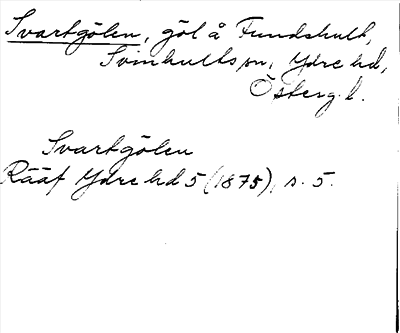 Svartgölen, göl å Fundshult,
Svinhults sn, Ydre hd,
Österg. l.
Svartgölen
Rääf Ydre hd 5 (1875), s. 5.